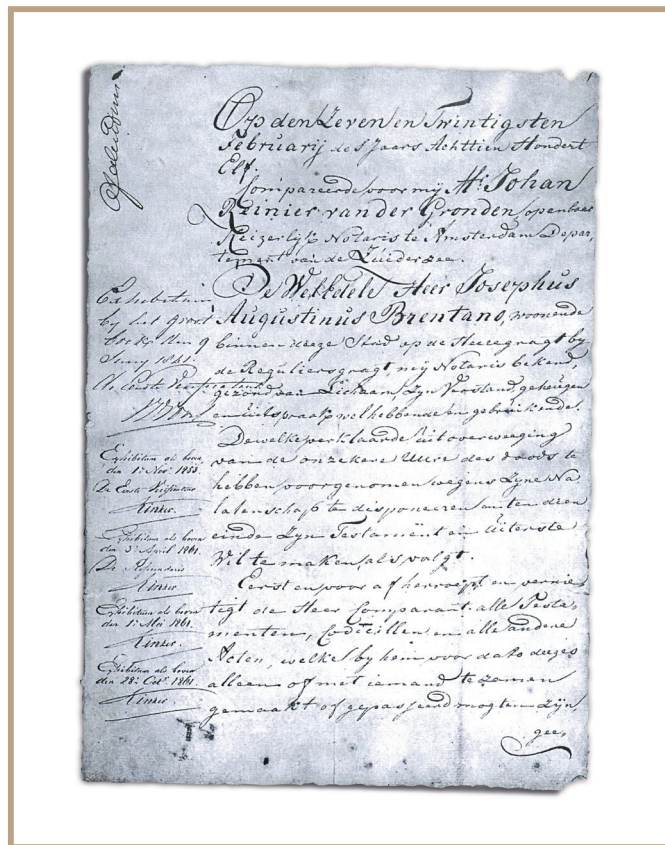 Op den Zeven en Twintigsten
Februarij des Jaars Achttien Hondert
Elf.
Compareerde voor my Mr. Johan
Reinier van der Gronden, openbaar
Keizerlyk Notaris te Amsterdam Depar,
tement van de Zuiderzee.
De WelEdele Heer Josephus
Augustinus Brentano, woonende
binnen deeze Stad op de Heeregragt by
de Reguliersgragt, my Notaris bekend,
gezond van Lichaam, zyn Verstand, geheugen
en uitspraak wel hebbende en gebruikende.
Dewelke verklaarde uit overweeging
van de onzekere Uure des doods te
hebben voorgenomen wegens Zyne Na
latenschap te disponeeren en ten dien
einde Zyn Testament en Uiterste
Wil te maken, als volgt.
Eerst en voor af herroept en vernie
tigt de Heer Comparant alle Testa,
menten, Codicillen en alle andere
Acten, welke by hem voor dato deezes
alleen of met iemand te zamen
gemaakt of gepasseerd mogten zyn,
gee,
Exhibitum
by het
den 9
1841.
Exhibitum als boven
den 1e Nov. 1853.
De Eerste
Exhibitum als boven
den 3e April 1861.
De
Exhibitum als boven
den 1e Mei 1861.
Exhibitum als boven
den 28e Oct. 1861.